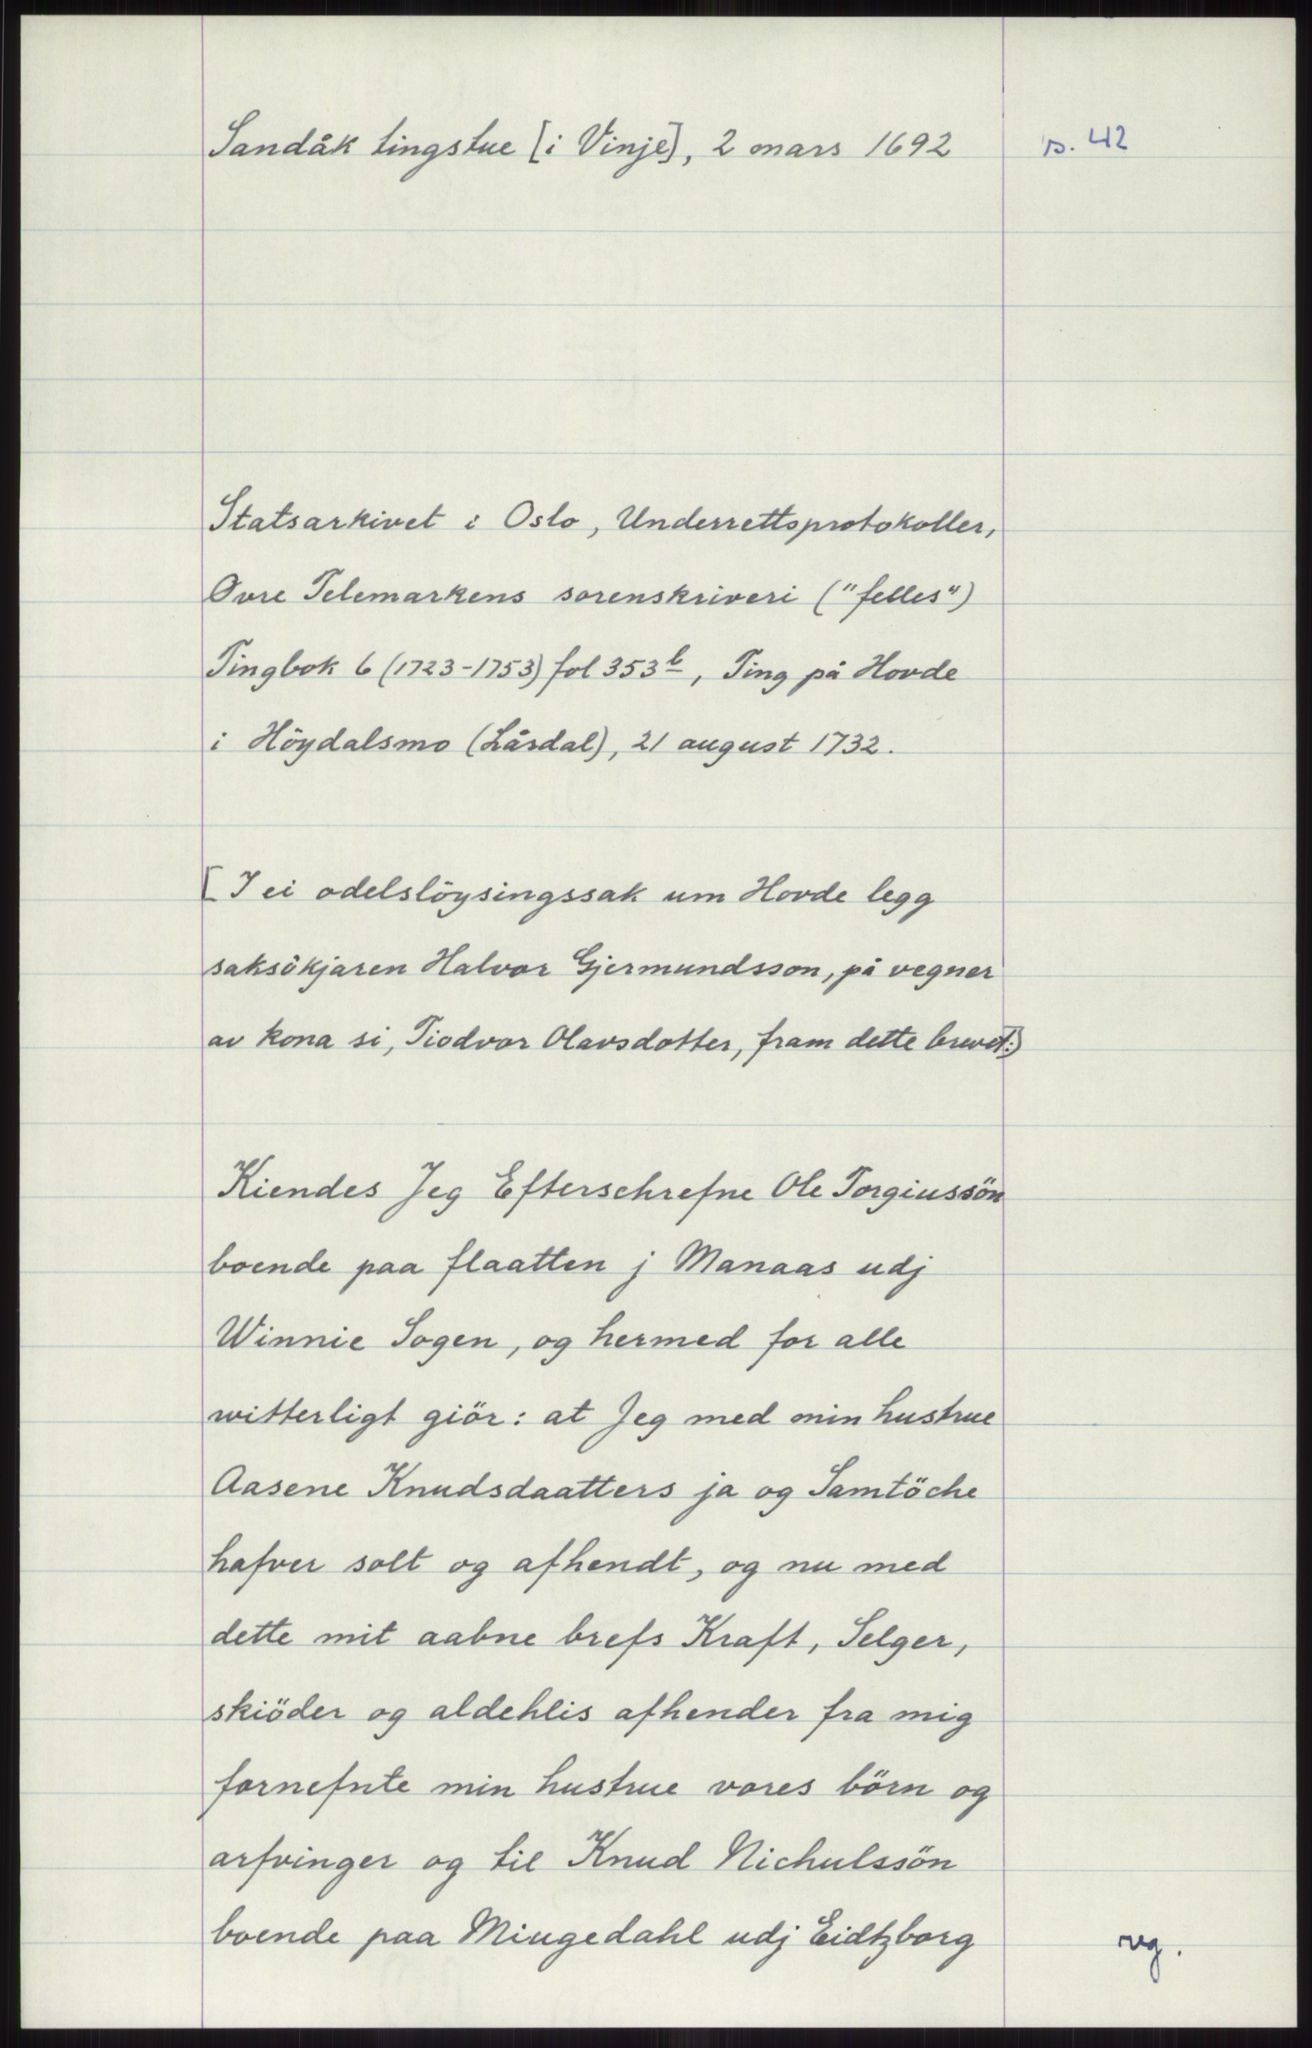 Sandåk tingstue [i Vinje], 2 mars 1692
s. 42
Statsarkivet i Oslo, Underrettsprotokoller,
Øvre Telemarkens sorenskriveri ("felles")
Tingbok 6 (1723-1753) fol 353b, Ting på Hovde
i Höydalsmo (Lårdal), 21 august 1732.
[I ei odelslöysingssak um Hovde legg
saksökjaren Halvor Gjermundsson, på vegner
av kona si, Tiodvor Olavsdotter, fram dette brevet:]
Kiendes Jeg Efterschrefne Ole Torgiussön
boende paa flaatten j Manaas udj
Winnie Sogen, og hermed for alle
witterligt giör: at Jeg med min hustrue
Aasene Knudsdaatters ja og Samtöche
hafver solt og afhendt, og nu med
dette mit aabne brefs Kraft, Selger,
skiöder og aldehlis afhender fra mig
fornefnte min hustrue vores börn og
arfvinger og til Knud Nichulssön
boende paa Miugedahl udj Eidtzborg
reg.